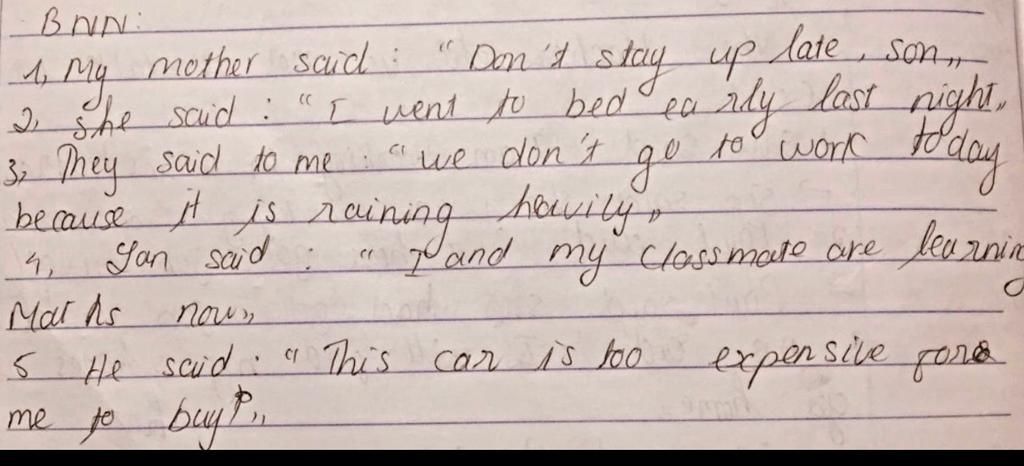 BNN:
1, My mother said : “Don't stay up late, son„
2, She said : “I went to bed early last night„
3, They said to me : “we don't go to work today
because it is raining heavily„
4, Jan said : “I and my classmate are learning
Maths now„
5 He said : “This car is too expensive for
me to buy„